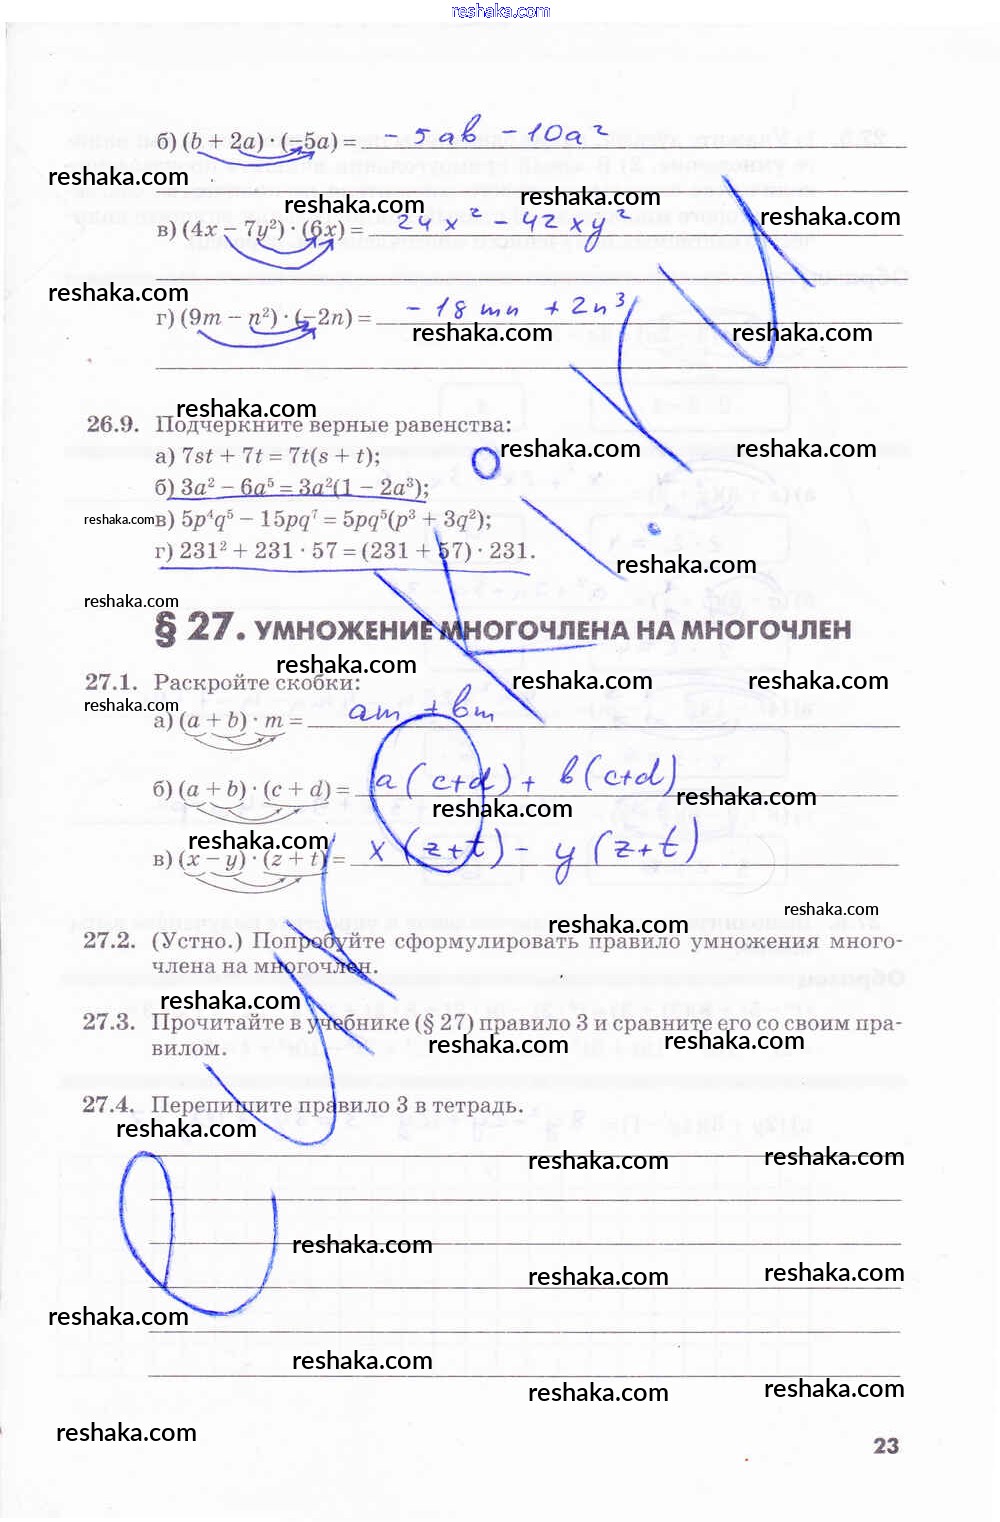 reshaka.com
б) (b + 2a) · (−5a) = − 5ab − 10a²
reshaka.com
reshaka.com reshaka.com reshaka.com
в) (4x − 7y²) · (6x) = 24x² − 42xy²
reshaka.com
г) (9m − n²) · (−2n) = − 18mn + 2n³
reshaka.com reshaka.com
reshaka.com
26.9. Подчеркните верные равенства:
reshaka.com reshaka.com
а) 7st + 7t = 7t(s + t);
б) 3a² − 6a⁵ = 3a²(1 − 2a³);
reshaka.com
в) 5p⁴q⁵ − 15pq⁷ = 5pq⁵(p³ + 3q²);
г) 231² + 231 · 57 = (231 + 57) · 231.
reshaka.com
reshaka.com
§ 27. УМНОЖЕНИЕ МНОГОЧЛЕНА НА МНОГОЧЛЕН
reshaka.com
27.1. Раскройте скобки:
reshaka.com reshaka.com
reshaka.com
а) (a + b) · m = am + bm
б) (a + b) · (c + d) = a(c+d) + b(c+d)
reshaka.com reshaka.com
reshaka.com
в) (x − y) · (z + t) = x(z+t) − y(z+t)
reshaka.com reshaka.com
27.2. (Устно.) Попробуйте сформулировать правило умножения много-
члена на многочлен.
reshaka.com
27.3. Прочитайте в учебнике (§ 27) правило 3 и сравните его со своим пра-
вилом.
reshaka.com reshaka.com
27.4. Перепишите правило 3 в тетрадь.
reshaka.com
reshaka.com reshaka.com
reshaka.com
reshaka.com reshaka.com
reshaka.com
reshaka.com
reshaka.com reshaka.com
reshaka.com
23